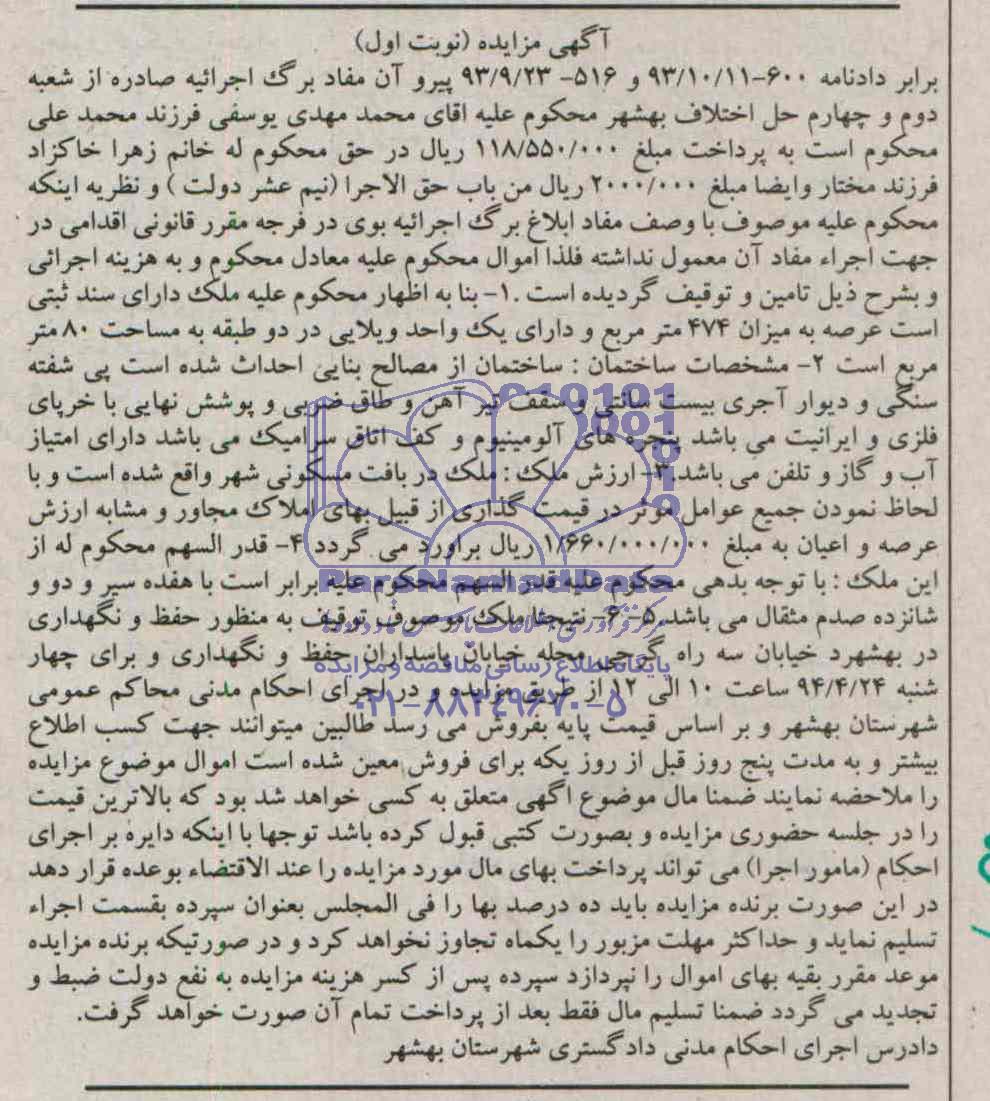 آگهی مزایده (نوبت اول)
برابر دادنامه ۶۰۰-۹۳/۱۰/۱۱ و ۵۱۶- ۹۳/۹/۲۳ پیرو آن مفاد برگ اجرائیه صادره از شعبه
دوم و چهارم حل اختلاف بهشهر محکوم علیه اقای محمد مهدی یوسفی فرزند محمد علی
محکوم است به پرداخت مبلغ ۱۱۸/۵۵۰/۰۰۰ ریال در حق محکوم له خانم زهرا خاکزاد
فرزند مختار وایضا مبلغ ۲۰۰۰/۰۰۰ ریال من باب حق الاجرا (نیم عشر دولت ) و نظریه اینکه
محکوم علیه موصوف با وصف مفاد ابلاغ برگ اجرائیه بوی در فرجه مقرر قانونی اقدامی در
جهت اجراء مفاد آن معمول نداشته فلذا اموال محکوم علیه معادل محکوم و به هزینه اجرائی
و بشرح ذیل تامین و توقیف گردیده است .۱- بنا به اظهار محکوم علیه ملک دارای سند ثبتی
است عرصه به میزان ۴۷۴ متر مربع و دارای یک واحد ویلایی در دو طبقه به مساحت ۸۰ متر
مربع است ۲- مشخصات ساختمان : ساختمان از مصالح بنایی احداث شده است پی شفته
سنگی و دیوار آجری بیست سانتی و سقف تیر آهن و طاق ضربی و پوشش نهایی با خرپای
فلزی و ایرانیت می باشد پنجره های آلومینیوم و کف اتاق سرامیک می باشد دارای امتیاز
آب و گاز و تلفن می باشد.۳- ارزش ملک : ملک در بافت مسکونی شهر واقع شده است و با
لحاظ نمودن جمیع عوامل موثر در قیمت گذاری از قبیل بهای املاک مجاور و مشابه ارزش
عرصه و اعیان به مبلغ ۱/۶۶۰/۰۰۰/۰۰۰ ریال براورد می گردد ۴- قدر السهم محکوم له از
این ملک : با توجه بدهی محکوم علیه قدر السهم محکوم علیه برابر است با هفده سیر و دو و
شانزده صدم مثقال می باشد.۵-۶- نتیجتا ملک موصوف توقیف به منظور حفظ و نگهداری
در بهشهرد خیابان سه راه گرجی محله خیابان پاسداران حفظ و نگهداری و برای چهار
شنبه ۹۴/۴/۲۴ ساعت ۱۰ الی ۱۲ از طریق مزایده و در اجرای احکام مدنی محاکم عمومی
شهرستان بهشهر و بر اساس قیمت پایه بفروش می رسد طالبین میتوانند جهت کسب اطلاع
بیشتر و به مدت پنج روز قبل از روز یکه برای فروش معین شده است اموال موضوع مزایده
را ملاحضه نمایند ضمنا مال موضوع اگهی متعلق به کسی خواهد شد بود که بالاترین قیمت
را در جلسه حضوری مزایده و بصورت کتبی قبول کرده باشد توجها با اینکه دایره بر اجرای
احکام (مامور اجرا) می تواند پرداخت بهای مال مورد مزایده را عند الاقتضاء بوعده قرار دهد
در این صورت برنده مزایده باید ده درصد بها را فی المجلس بعنوان سپرده بقسمت اجراء
تسلیم نماید و حداکثر مهلت مزبور را یکماه تجاوز نخواهد کرد و در صورتیکه برنده مزایده
موعد مقرر بقیه بهای اموال را نپردازد سپرده پس از کسر هزینه مزایده به نفع دولت ضبط و
تجدید می گردد ضمنا تسلیم مال فقط بعد از پرداخت تمام آن صورت خواهد گرفت.
دادرس اجرای احکام مدنی دادگستری شهرستان بهشهر
ParsNamadData
پایگاه اطلاع رسانی مناقصه و مزایده
۰۲۱-۸۸۳۴۹۶۷۰-۵